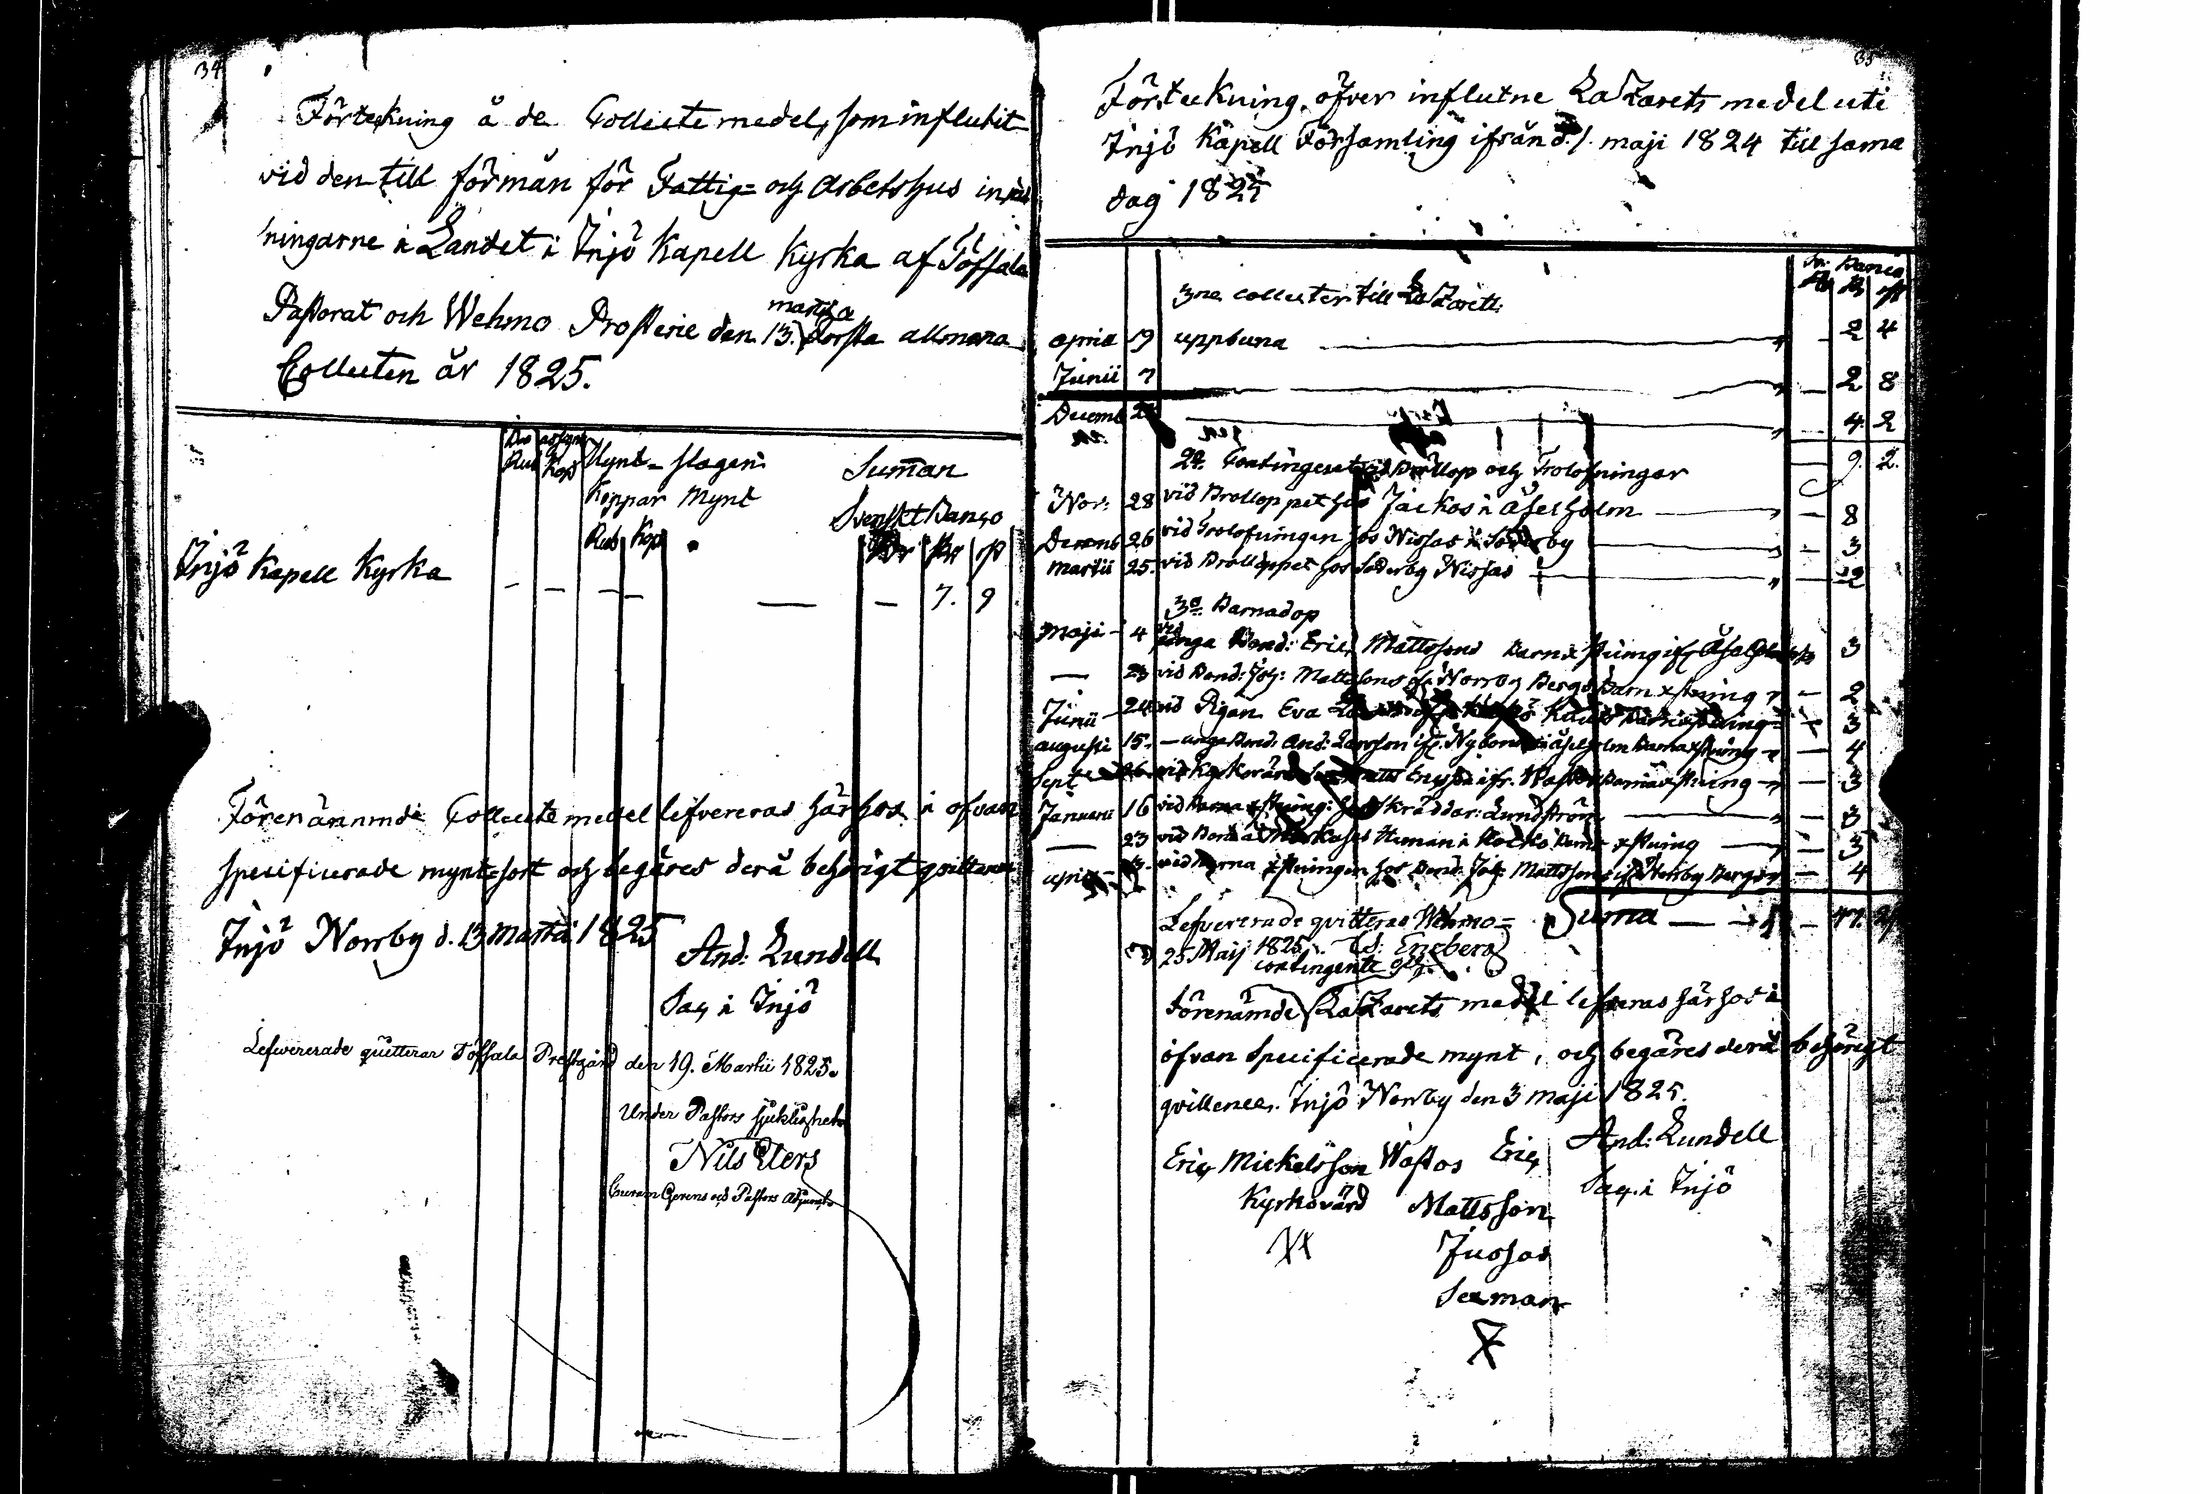 34
Förteckning å de Collecte medel, som influtit
vid den till förmån för Fattig= och Arbetshus inrätt
ningarne i Landet i Injö Kapell Kyrka af Töfsala
Pastorat och Wehmo Prosterie den 13. martii första allmäna
Collecten år 1825.
Mynt-slagen
Koppar Mynt
Rub Kop
Suman
Svenskt Banco
Rdr sk rst
Injö Kapell Kyrka — — — — — — 7. 9
Förenämnde Collecte medel lefvereras härhos i ofvan
specificerade myntsort och begäres derå behörigt qvittence
Injö Norrby d. 13 Martii 1825
And: Lundell
Sac. i Injö
Lefvererade qvitterar Töfsala Prestgård den 19. Martii 1825.
Under Pastors sjuklighet
Nils Elers
och Pastors Adjunct
35
Förteckning öfver influtne Lazarets medel uti
Injö Kapell Församling ifrån d. 1. maji 1824 till sama
dag 1825
3ne collecter till Lazarett
april 19 uppburna — 2 4
Junii 7 — 2 8
Decemb — 4 2
9. 2.
Contingent vid Bröllop och Trolofningar
Nov: 28 vid Brölloppet hos Jackos i Åselholm — 8
Decemb 26 vid Trolofningen hos Nissas i Söderby — 3
Martii 25. vid Brölloppet hos Söderby Nissas — 12
3o Barnadop
Maji 4 vid unga Bond: Eric Mattssons Barn xstning ifr Åselholm 3
— 23 vid Bond: Joh: Mattssons ifr Norrby Bergs Barn xstning — 2
Junii 24 vid Pigan Eva — 3
augusti 15. — unga Bond: And: Larsson ifr. Nybonda i Åselholm Barna xstning — 4
Sept 26 vid Kyrkovärd — 3
Januarii 16 vid Barna xstning: hos skräddar: Lundström — 3
— 23 vid — xstning — 3
april 3. vid Barna xstningen hos Bond: Joh: Mattsson ifr Norrby Bergs — 4
Suma
Lefvererade qvitteras Wehmo=
d 25 Maij 1825. Engberg
contingente och
Förenämde Lazarets medel lefvereras härhos i
ofvan specificerade mynt, och begäres derå behörigt
qvittence. Injö Norrby den 3 maji 1825.
And: Lundell
Sac. i Injö
Eric Mickelsson Wastos
Kyrkovärd
Eric
Mattsson
Jussas
Sexman